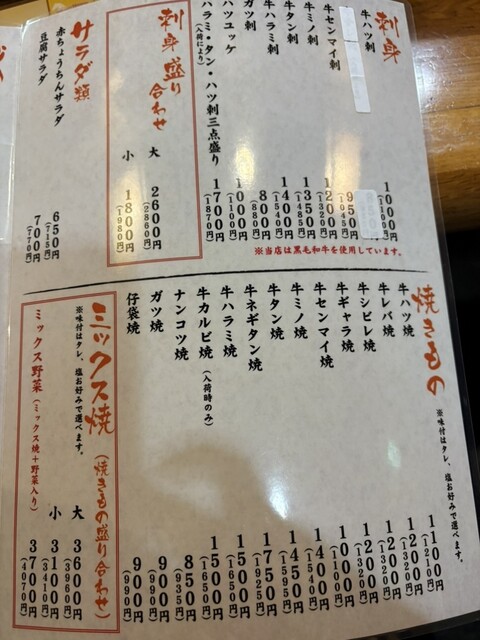 刺身
牛ハツ刺 1000円(1100円)
牛センマイ刺 950円(1045円)
牛ミノ刺 1200円(1320円)
牛タン刺 1350円(1485円)
牛ハラミ刺 1400円(1540円)
ガツ刺 800円(880円)
ハツユッケ 1000円(1100円)
ハラミ・タン・ハツ刺三点盛り 1700円(1870円)
(入荷により)
※当店は黒毛和牛を使用しています。
刺身盛り合わせ
大 2600円(2860円)
小 1800円(1980円)
サラダ類
赤ちょうちんサラダ 650円(715円)
豆腐サラダ 700円(770円)
焼きもの
※味付はタレ、塩お好みで選べます。
牛ハツ焼 1100円(1210円)
牛レバ焼 1200円(1320円)
牛シビレ焼 1200円(1320円)
牛ギャラ焼 1200円(1320円)
牛センマイ焼 1000円(1100円)
牛ミノ焼 1400円(1540円)
牛タン焼 1450円(1595円)
牛ネギタン焼 1750円(1925円)
牛ハラミ焼 1500円(1650円)
牛カルビ焼(入荷時のみ) 1500円(1650円)
ナンコツ焼 850円(935円)
ガツ焼 900円(990円)
仔袋焼 900円(990円)
ミックス焼(焼きもの盛り合わせ)
※味付はタレ、塩お好みで選べます。
大 3600円(3960円)
小 3100円(3410円)
ミックス野菜(ミックス焼+野菜入り) 3700円(4070円)